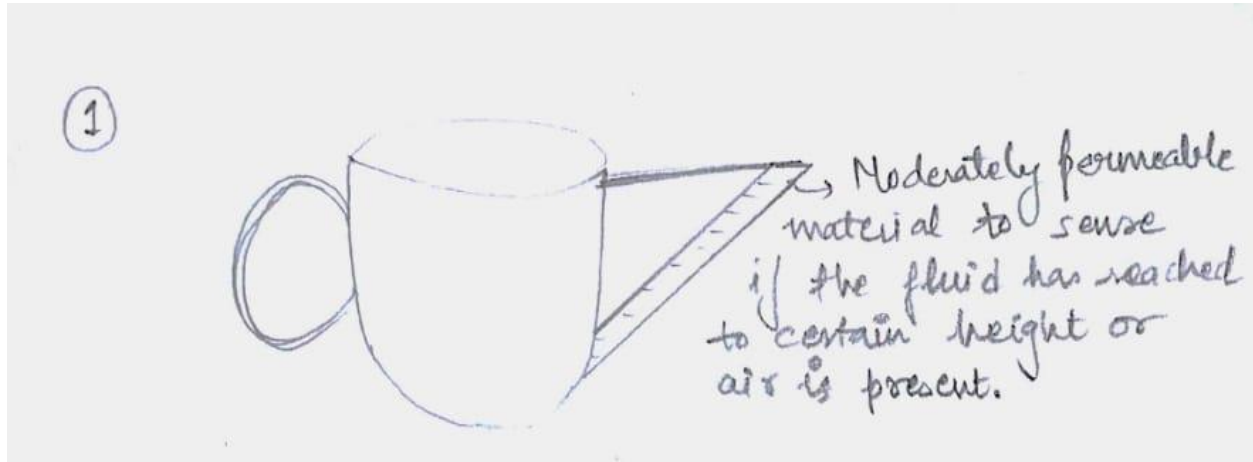 1
Moderately permeable
material to sense
if the fluid has reached
to certain height or
air is present.